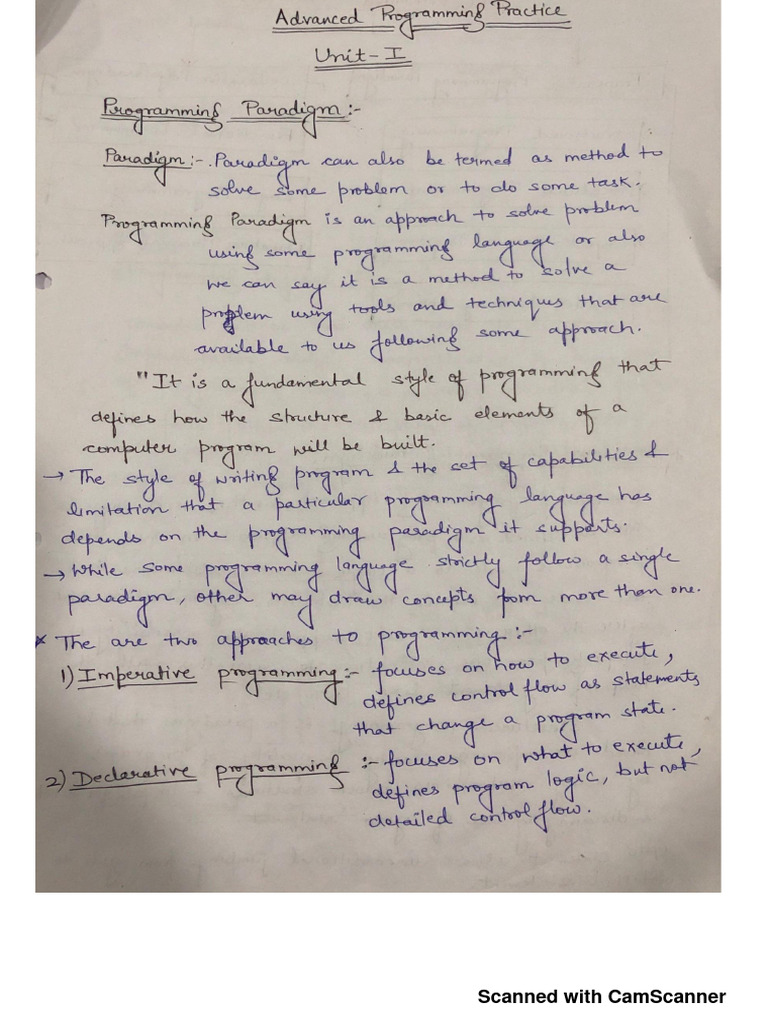 Advanced Programming Practice
Unit - I
Programming Paradigm :-
Paradigm :- Paradigm can also be termed as method to
solve some problem or to do some task.
Programming Paradigm is an approach to solve problem
using some programming language or also
we can say it is a method to solve a
problem using tools and techniques that are
available to us following some approach.
"It is a fundamental style of programming that
defines how the structure & basic elements of a
computer program will be built.
→ The style of writing program & the set of capabilities &
limitation that a particular programming language has
depends on the programming paradigm it supports.
→ While some programming language strictly follow a single
paradigm, other may draw concepts from more than one.
* The are two approaches to programming :-
1) Imperative programming :- focuses on how to execute,
defines control flow as statements
that change a program state.
2) Declarative programming :- focuses on what to execute,
defines program logic, but not
detailed control flow.
Scanned with CamScanner